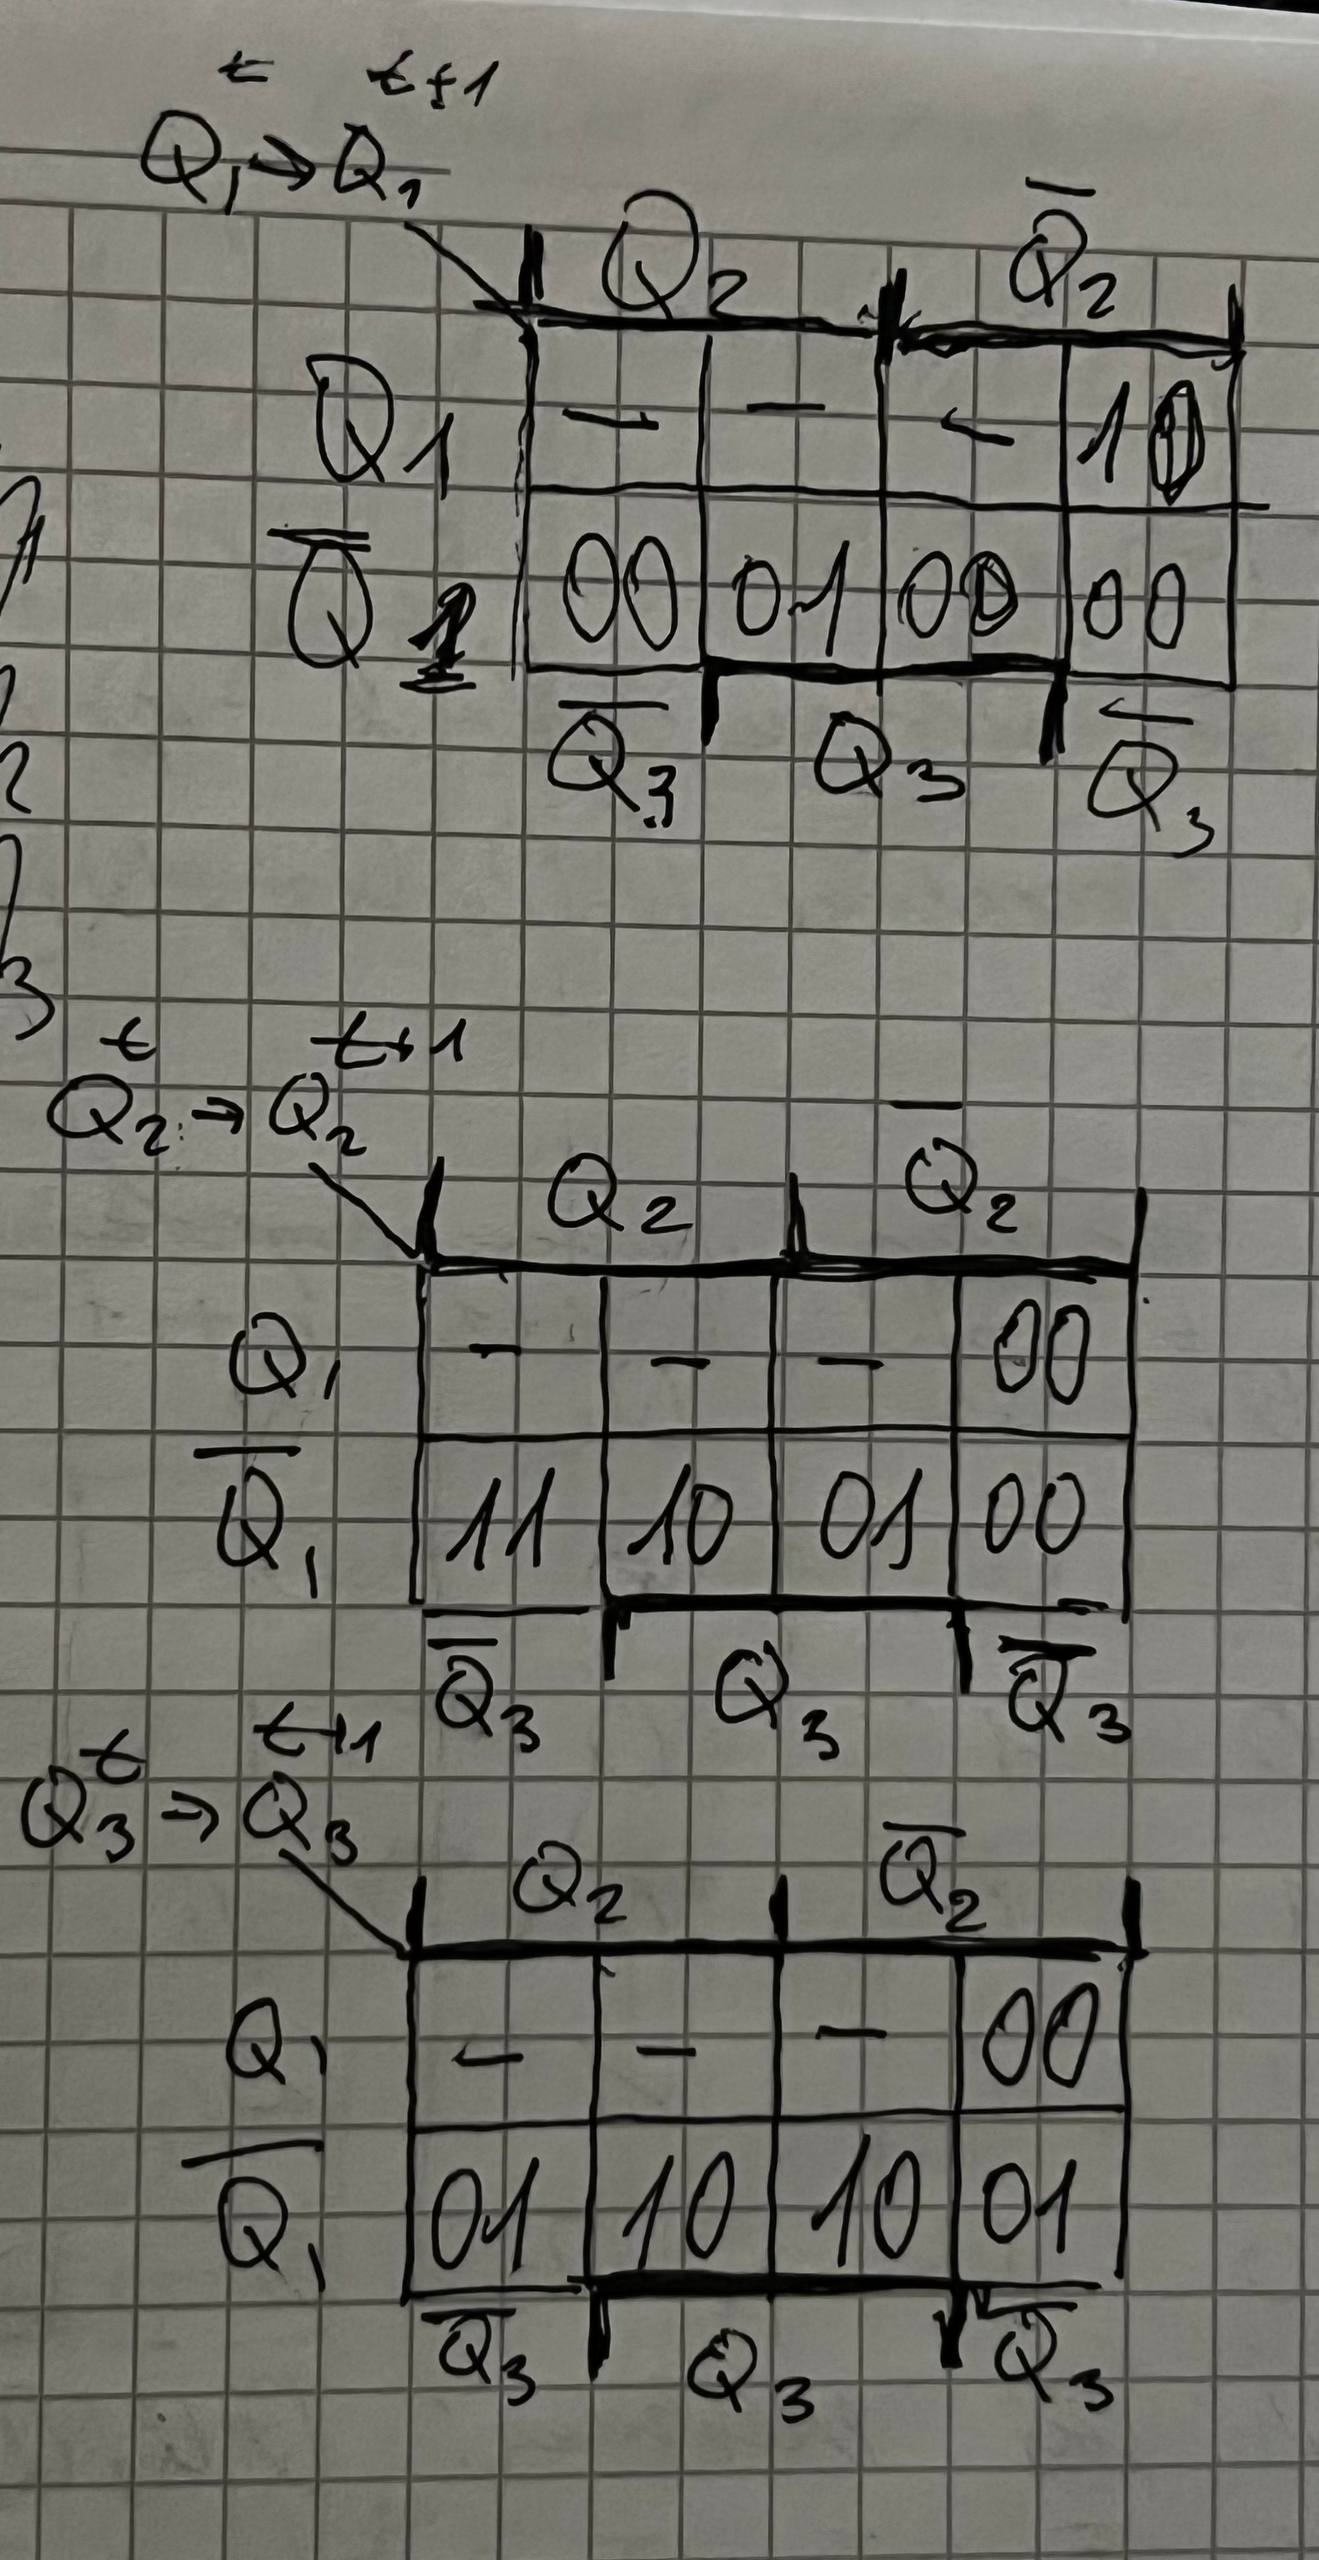 t t+1
Q₁ → Q₁
Q₂ Q̅₂
Q₁ – – – 10
Q̅₁ 00 01 00 00
Q̅₃ Q₃ Q̅₃
2
3
t t+1
Q₂ → Q₂
Q₂ Q̅₂
Q₁ – – – 00
Q̅₁ 11 10 01 00
Q̅₃ Q₃ Q̅₃
t t+1
Q₃ → Q₃
Q₂ Q̅₂
Q₁ – – – 00
Q̅₁ 01 10 10 01
Q̅₃ Q₃ Q̅₃